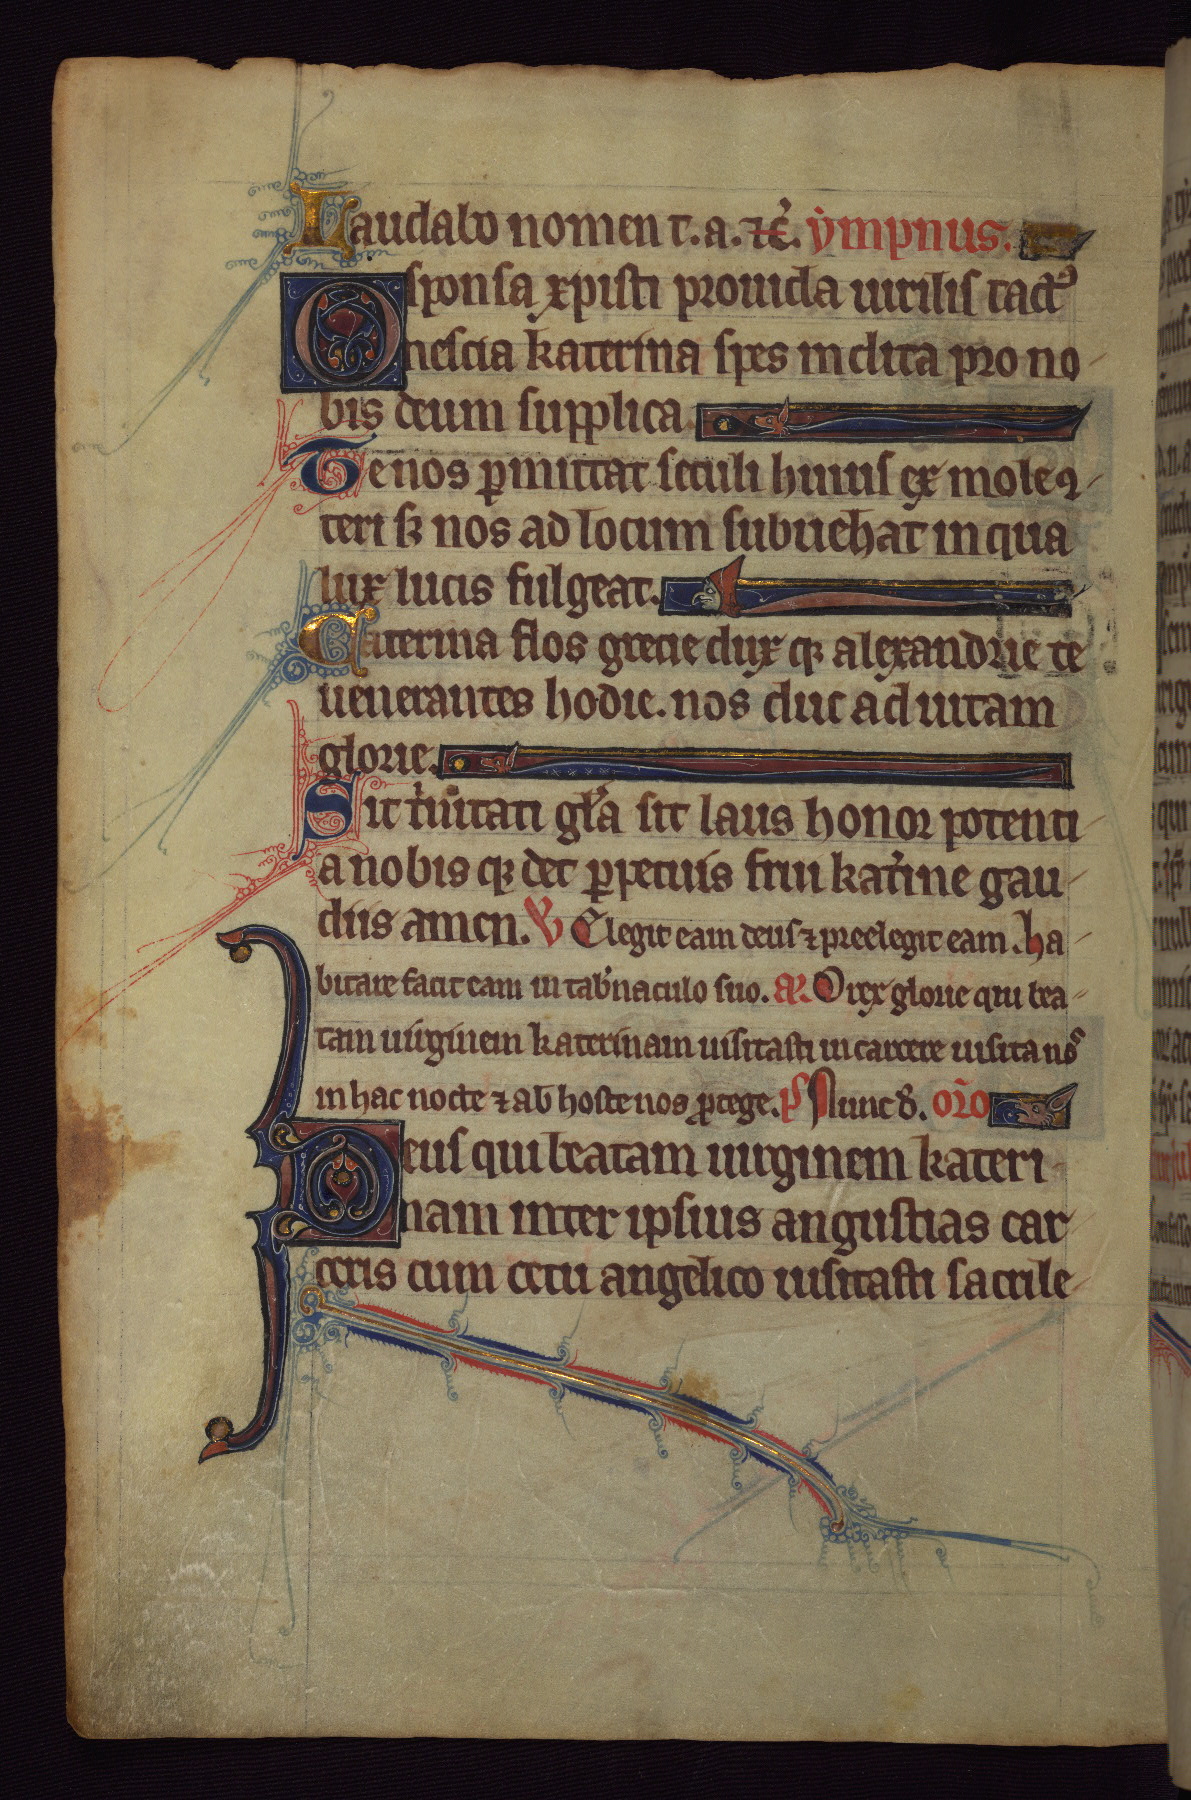 Laudabo nomen t. a. ⁊c̃. ympnus.
O sponsa xpisti prouida uirilis tact᾽
nescia katerina spes inclita pro no-
bis deum supplica
Te nos ꝑmittat seculi huius ex mole
teri sꝫ nos ad locum subuehat in qua
lux lucis fulgeat.
Caterina flos grecie dux qꝫ alexandrie te
uenerantes hodie. nos duc ad uitam
glorie.
Sit t'nitati gl'a sit laus honor potenti-
a nobis qꝫ det ꝑpetuis frui kat'ine gau-
diis amen. ℣ Elegit eam deus ⁊ preelegit eam. ha-
bitare facit eam in tab'naculo suo. añ. O rex glorie qui bea-
tam uirginem katerinam uisitasti in carcere uisita nos
in hac nocte ⁊ ab hoste nos ꝓtege. p̃s Nunc d̃. or̃o
Deus qui beatam uirginem kateri-
nam inter ipsius angustias car-
ceris cum cetu angelico uisitasti sacrile-